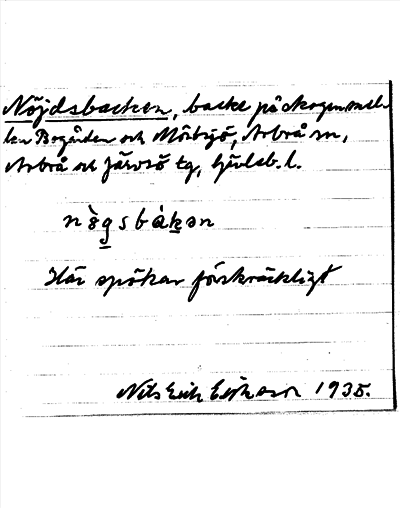 Nöjdsbacken, backe på skogen mel-
len Bogården och Mörtsjö, Arbrå sn,
Arbrå och Järvsö tg, Gävleb. l.
nö̀gsbàkən
Här spökar förskräckligt
Nils Erik Eriksson 1935.